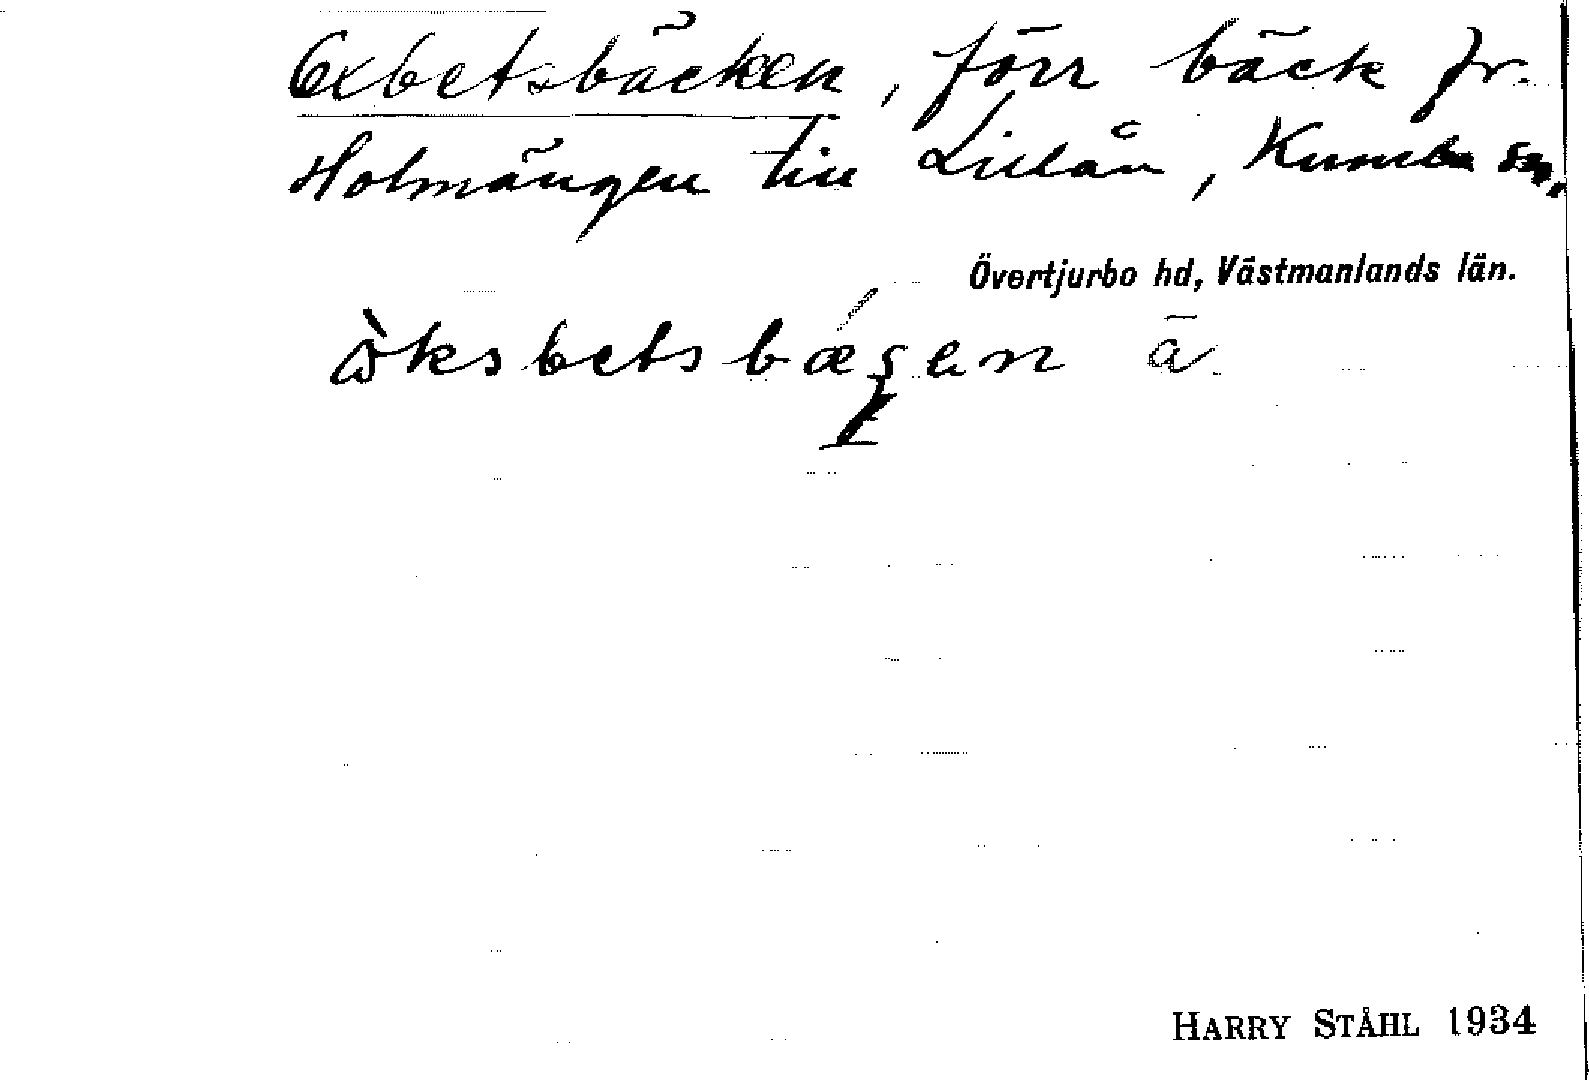 Oxbetsbäcken, förr bäck fr.
Holmängen till Lillån, Kumla sn,
Övertjurbo hd, Västmanlands län.
ā
HARRY STÅHL 1934